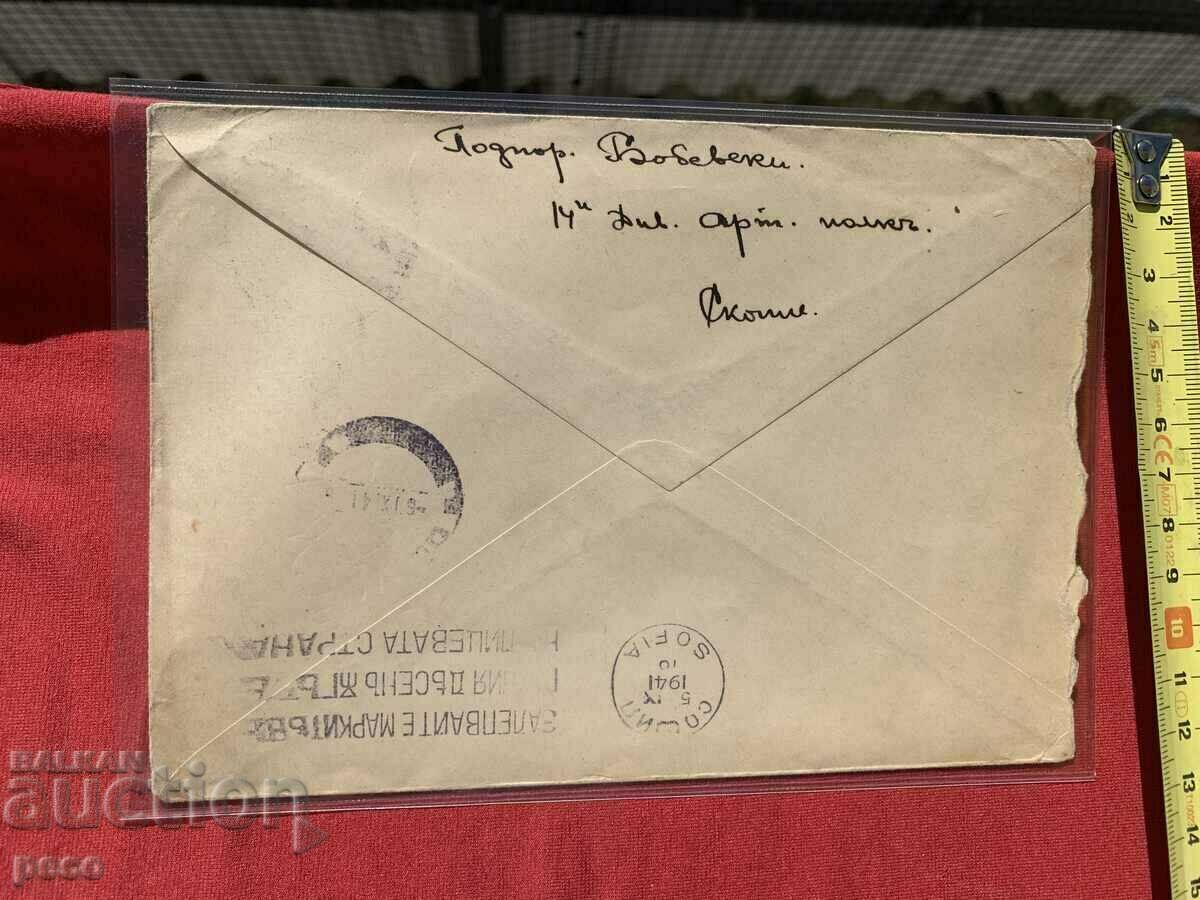 Подпор. Бобевски.
14и Див. арт. полкъ.
Скопие.
-6.IX.41
ЗАЛЕПВАЙТЕ МАРКИТѢ ВЪ
ГОРНИЯ ДѢСЕНЪ ѪГЪЛ
НА ЛИЦЕВАТА СТРАНА
СОФИЯ
5 IX
1941
10
SOFIA
BALKAN
auction
peco
1 2 3 4 5 6 7 8 9 10 11 12 13 14 15
5m
CE
M07
0122